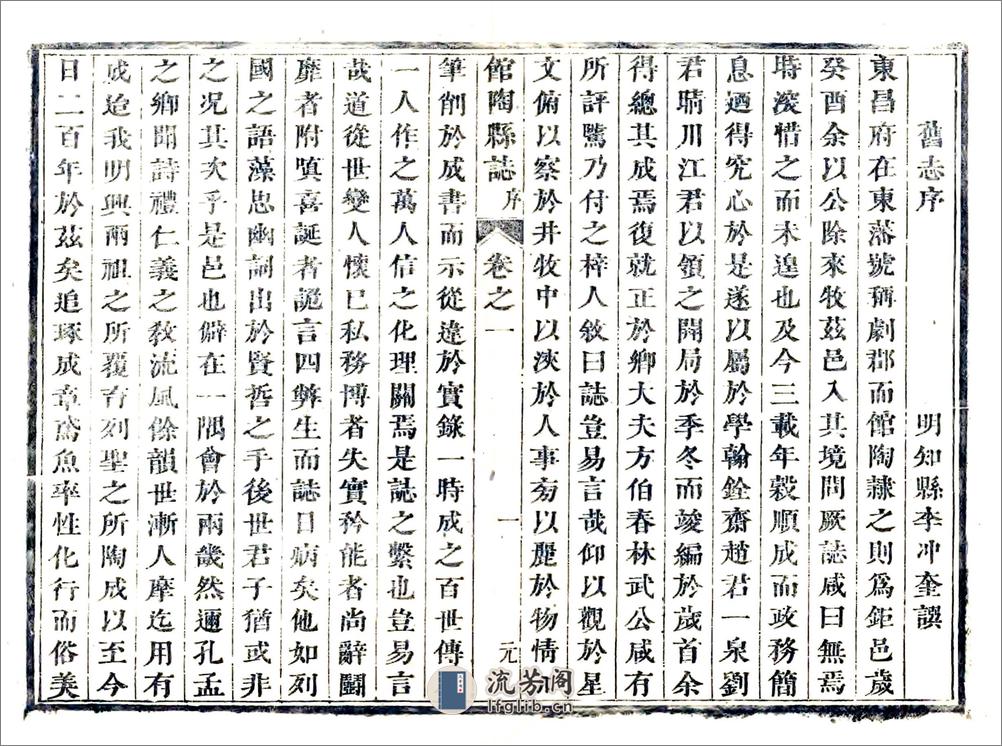 舊志序
明知縣李冲奎譔
東昌府在東藩號稱劇郡而館陶隸之則爲鉅邑歲
癸酉余以公除來牧茲邑入其境問厥誌咸曰無焉
時深惜之而未遑也及今三載年穀順成而政務簡
息迺得究心於是遂以屬於學翰銓齋趙君一泉劉
君晴川江君以領之開局於季冬而竣編於歲首余
得總其成焉復就正於鄉大夫方伯春林武公咸有
所評騭乃付之梓人敘曰誌豈易言哉仰以觀於星
文俯以察於井牧中以浹於人事旁以歷於物情
館陶縣誌 序 卷之一 一 元
筆削於成書而示從違於實錄一時成之百世傳
一人作之萬人信之化理關焉是誌之繫也豈易言
哉道從世變人懷已私務博者失實矜能者尚辭闘
靡者附嗔喜誕者詭言四弊生而誌日病矣他如列
國之語藻思幽詞出於賢哲之手後世君子猶或非
之况其次乎是邑也僻在一隅會於兩畿然邇孔孟
之鄉聞詩禮仁義之敎流風餘韻世漸人摩迄用有
成迨我明興兩祖之所覆育列聖之所陶成以至今
日二百年於茲矣追琢成章鳶魚率性化行而俗美
流芳阁
lfglib.cn